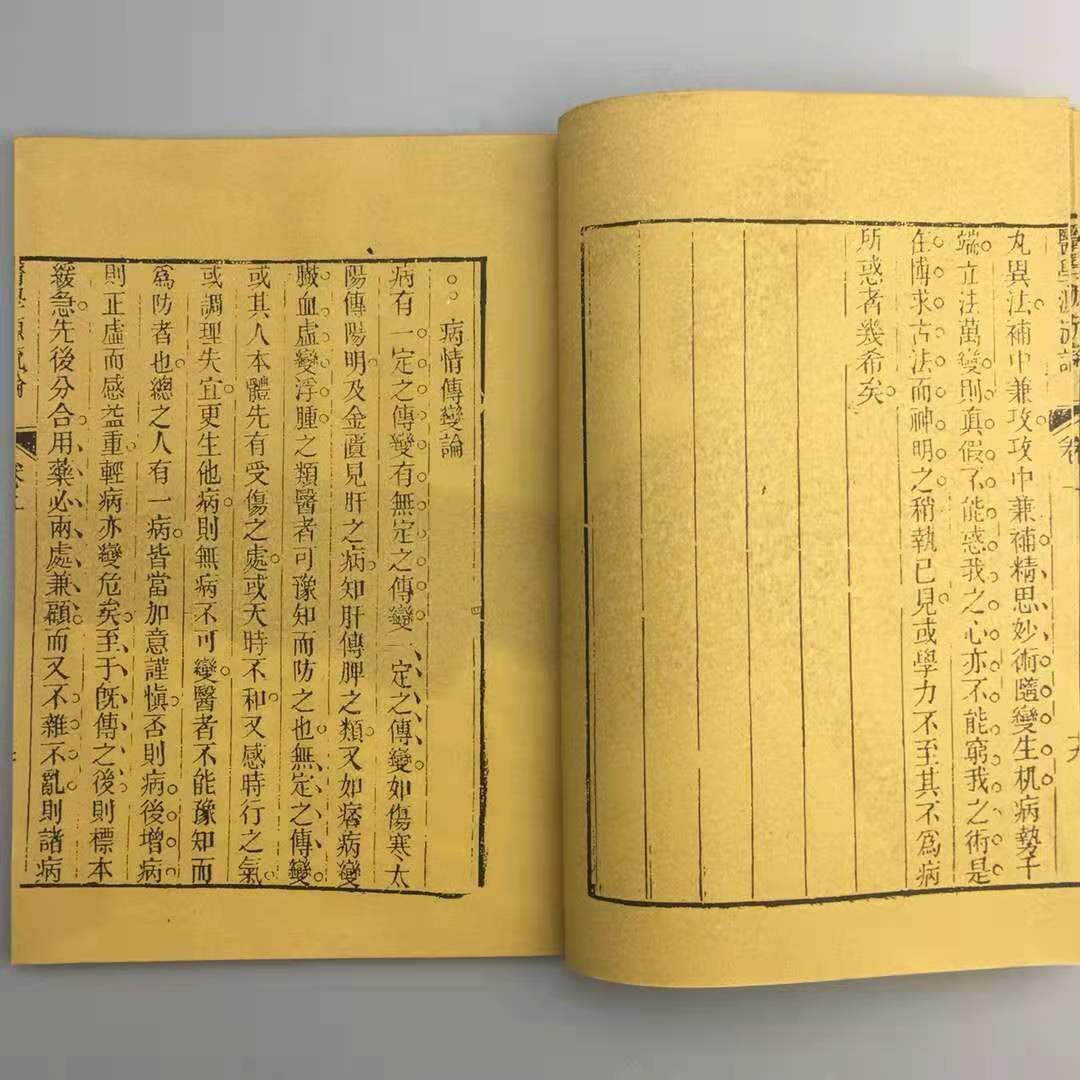 丸異法補中兼攻攻中兼補精思妙術隨變生机病勢千
端立法萬變則真假不能惑我之心亦不能窮我之術是
在博求古法而神明之稍執已見或學力不至其不爲病
所惑者幾希矣
病情傳變論
病有一定之傳變有無定之傳變一定之傳變如傷寒太
陽傳陽明及金匱見肝之病知肝傳脾之類又如痞病變
臌血虛變浮腫之類醫者可豫知而防之也無定之傳變
或其人本體先有受傷之處或天時不和又感時行之氣
或調理失宜更生他病則無病不可變醫者不能豫知而
爲防者也總之人有一病皆當加意謹愼否則病後增病
則正虛而感益重輕病亦變危矣至于旣傳之後則標本
緩急先後分合用藥必兩處兼顧而又不雜不亂則諸病
醫學源流論